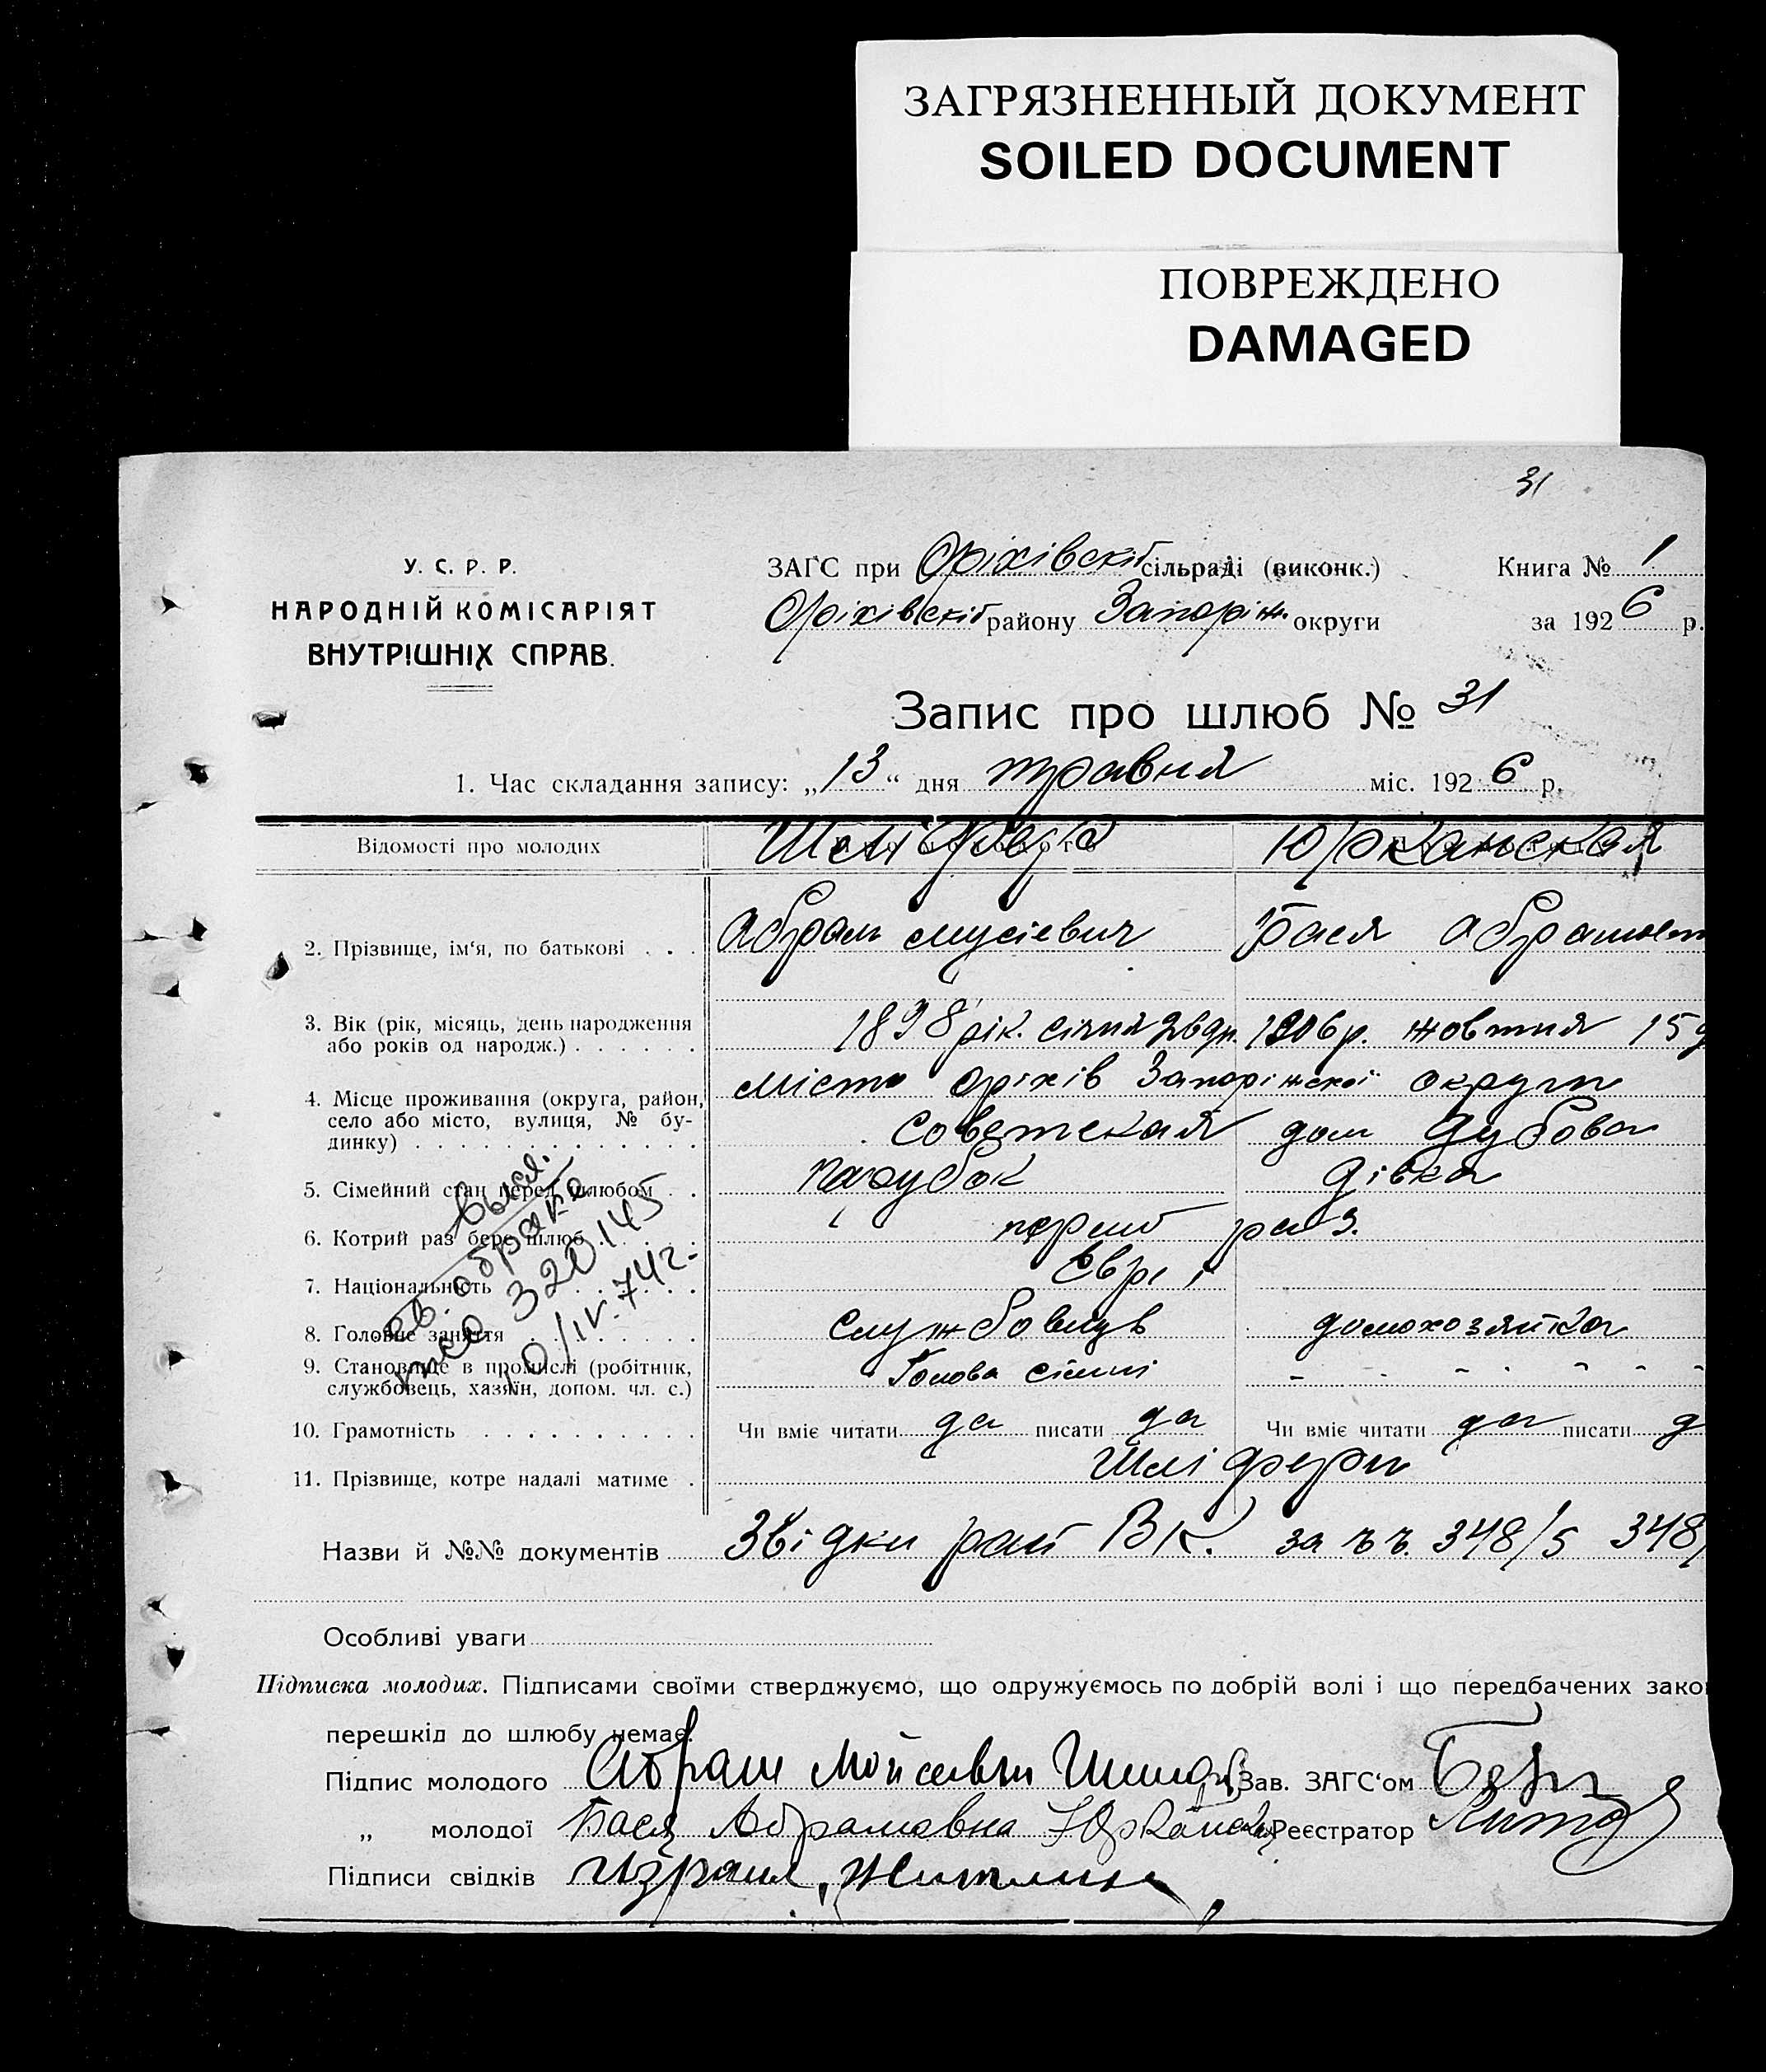 ЗАГРЯЗНЕННЫЙ ДОКУМЕНТ
SOILED DOCUMENT
ПОВРЕЖДЕНО
DAMAGED
31
У. С. Р. Р.
НАРОДНІЙ КОМІСАРІЯТ
ВНУТРІШНІХ СПРАВ.
ЗАГС при Оріхівскій сільраді (виконк.)
Оріхівскій району Запоріж. округи
Книга № 1
за 1926 р.
Запис про шлюб № 31
1. Час складання запису: „13“ дня травня міс. 1926 р.
Відомості про молодих Шліфер Юрканская
2. Прізвище, ім‘я, по батькові . . . Абрам Мусіевич Бася Абрамовн
3. Вік (рік, місяць, день народження
або років од народж.) . . . . . . 1898 рік. січня 26 дн. 1906 р. жовтня 15 д
4. Місце проживання (округа, район, місто Оріхів Запоріжскої округи
село або місто, вулиця, № бу-
динку) . . . . . . . . . . . . Советская дом Дубова
5. Сімейний стан перед шлюбом . . парубок дівка
6. Котрий раз бере шлюб . . . . перший раз.
7. Національність . . . . . . Євреї
8. Головне заняття . . . . . . службовець домохозяйка
9. Становище в промислі (робітник,
службовець, хазяїн, допом. чл. с.) Голова сімьі - - - - - -
10. Грамотність . . . . . . . . . . Чи вміє читати да писати да Чи вміє читати да писати д
11. Прізвище, котре надалі матиме . Шліфери
Назви й №№ документів Звідки рай ВК. за 348/5 348/
св. о браке
320145
10/IV.74г.
Особливі уваги
Підписка молодих. Підписами своїми стверджуємо, що одружуємось по добрій волі і що передбачених зако
перешкід до шлюбу немає.
Підпис молодого Абрам Мойсеевич Зав. ЗАГС‘ом
„ молодої Бася Абрамовна Юрканская Реєстратор
Підписи свідків Израил, Житлин